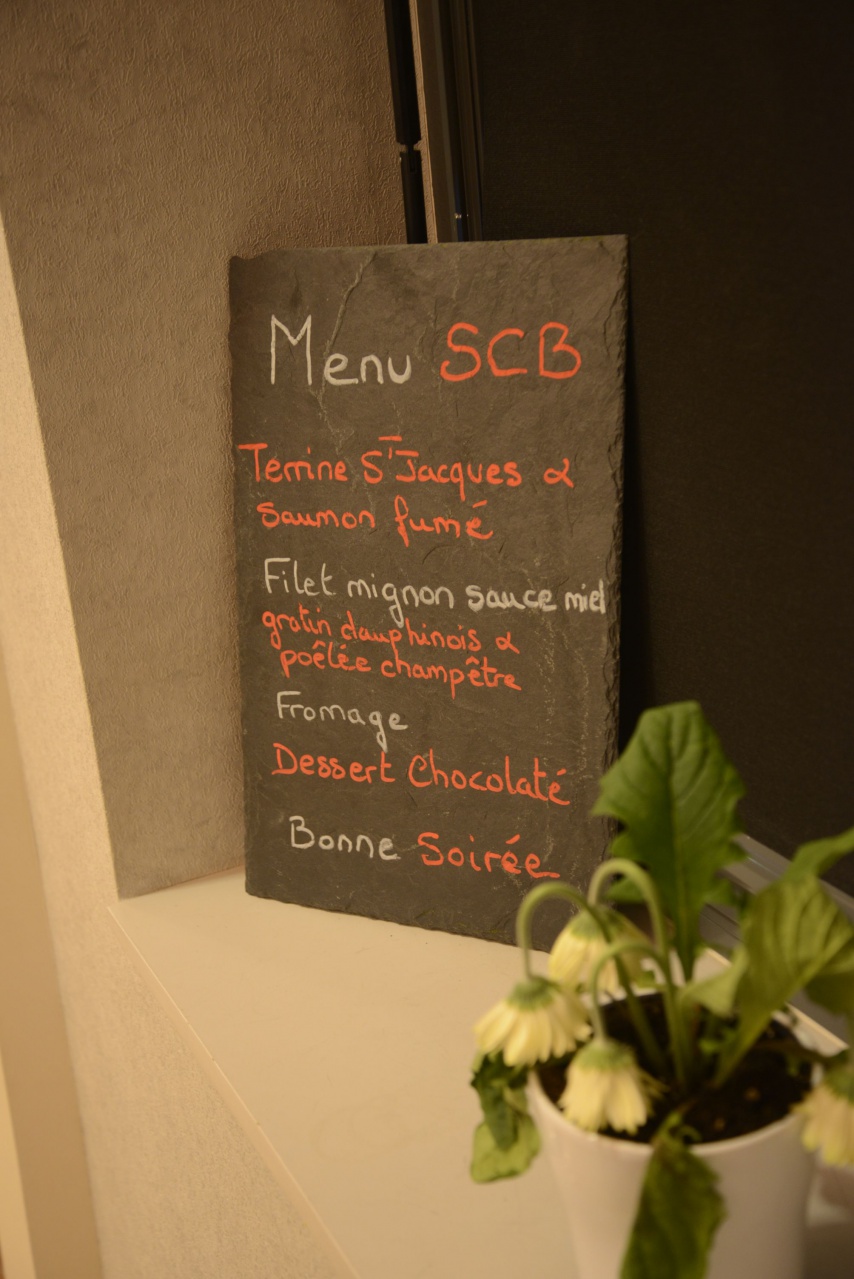 Menu SCB
Terrine St Jacques &
saumon fumé
Filet mignon sauce miel
gratin dauphinois &
poêlée champêtre
Fromage
Dessert Chocolaté
Bonne Soirée